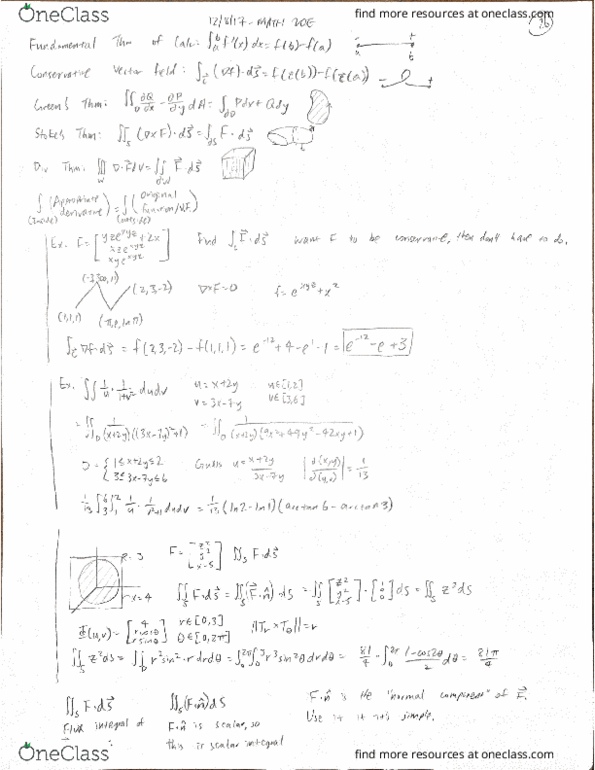 OneClass
find more resources at oneclass.com
12/8/17 - MATH 20E
26
Fundamental Thm of Calc: ∫_a^b f'(x) dx = f(b) - f(a)
a b
Conservative Vector field: ∫_C (∇f)·ds = f(c(b)) - f(c(a))
Green's Thm: ∬_D ∂Q/∂x - ∂P/∂y dA = ∫_∂D Pdx + Qdy
Stokes Thm: ∬_S (∇×F)·ds = ∫_∂S F·ds
Div Thm: ∭_W ∇·F dV = ∬_∂W F·ds
∫ (Appropriate derivative) = ∫ (Original function/V.F.)
(inside)
Ex. F = [yze^xyz + 2x, xze^xyz, xye^xyz] Find ∫_C F·ds want F to be conservative, then don't have to do.
(2,3,-2) ∇×F=0 f = e^xyz + x²
(1,1,1) (π, e, ln π)
∫_C ∇f·ds = f(2,3,-2) - f(1,1,1) = e^-12 + 4 - e^1 - 1 = e^-12 - e + 3
Ex. ∬ 1/u · 1/(1+v²) du dv u = x+2y u∈[1,2]
v = 3x-7y v∈[3,6]
= ∬_D 1/((x+2y)((3x-7y)²+1)) = ∬_D 1/((x+2y)(9x²+49y²-42xy+1))
D = { 1≤x+2y≤2 Guess u = x+2y |∂(x,y)/∂(u,v)| = 1/13
3≤3x-7y≤6 3x-7y
1/13 ∫_3^6 ∫_1^2 1/u · 1/(v²+1) du dv = 1/13 (ln2 - ln1)(arctan 6 - arctan 3)
R=3 F = [z², y², x-5] ∬_S F·ds
x=4 ∬_S F·ds = ∬_S (F·n̂)·ds = ∬_S [z², y², x-5]·[1, 0, 0] ds = ∬_S z² ds
Φ(u,v) = [4, r cosθ, r sinθ] r∈[0,3] θ∈[0,2π] ||T_r × T_θ|| = r
∬_S z² ds = ∬_D r² sin²·r dr dθ = ∫_0^2π ∫_0^3 r³ sin²θ dr dθ = 81/4 · ∫_0^2π (1-cos2θ)/2 dθ = 81π/4
∬_S F·ds ∬_S (F·n̂) dS F·n̂ is the "normal component" of F.
Flux integral of F·n̂ is scalar, so Use it if it's simple.
this is scalar integral
OneClass
find more resources at oneclass.com